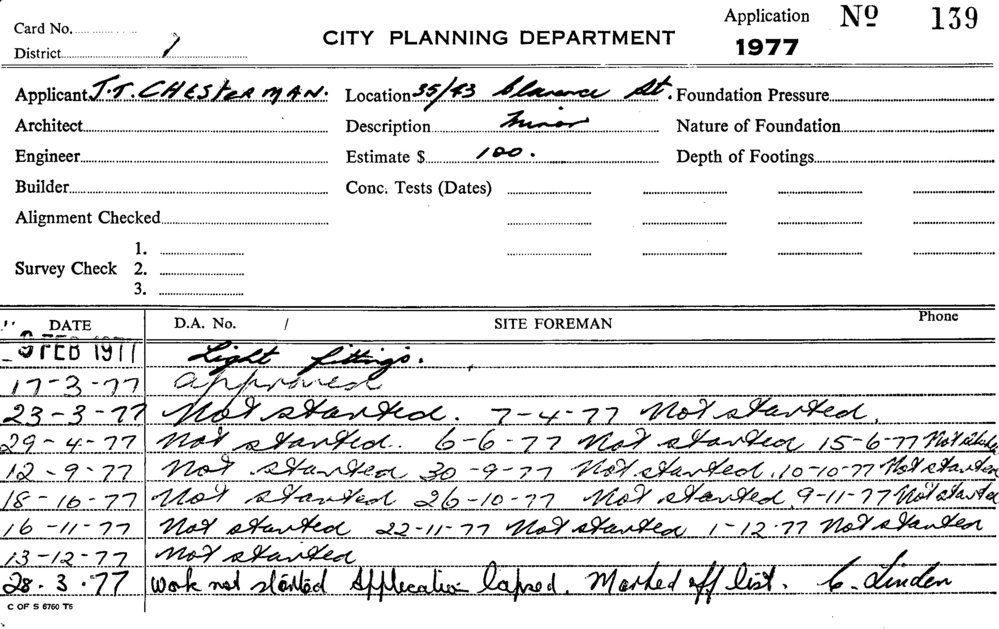 Card No.
District 1
CITY PLANNING DEPARTMENT
Application No 139
1977
Applicant J.T. CHESTERMAN. Location 35/43 Clarence St. Foundation Pressure
Architect Description Minor Nature of Foundation
Engineer Estimate $ 100. Depth of Footings
Builder Conc. Tests (Dates)
Alignment Checked
Survey Check 1.
2.
3.
DATE D.A. No. / SITE FOREMAN Phone
9 FEB 1977 Light fittings.
17-3-77 approved
23-3-77 Not started. 7-4-77 Not started.
29-4-77 Not started. 6-6-77 Not started 15-6-77 Not started
12-9-77 Not started 30-9-77 Not started. 10-10-77 Not started
18-10-77 Not started 26-10-77 Not started. 9-11-77 Not started
16-11-77 Not started 22-11-77 Not started 1-12-77 Not started
13-12-77 Not started
28.3.77 Work not started Application lapsed. Marked off list. C. Linden
C OF S 6760 T6